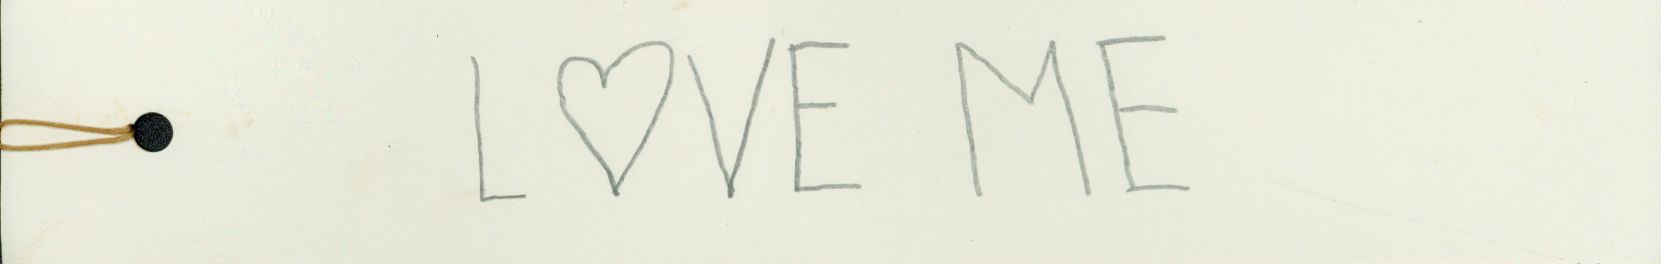 L♡VE ME